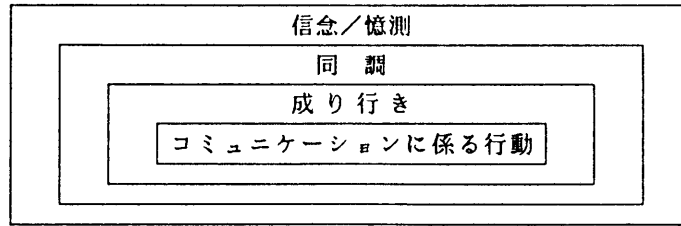 信念／憶測
同調
成り行き
コミュニケーションに係る行動